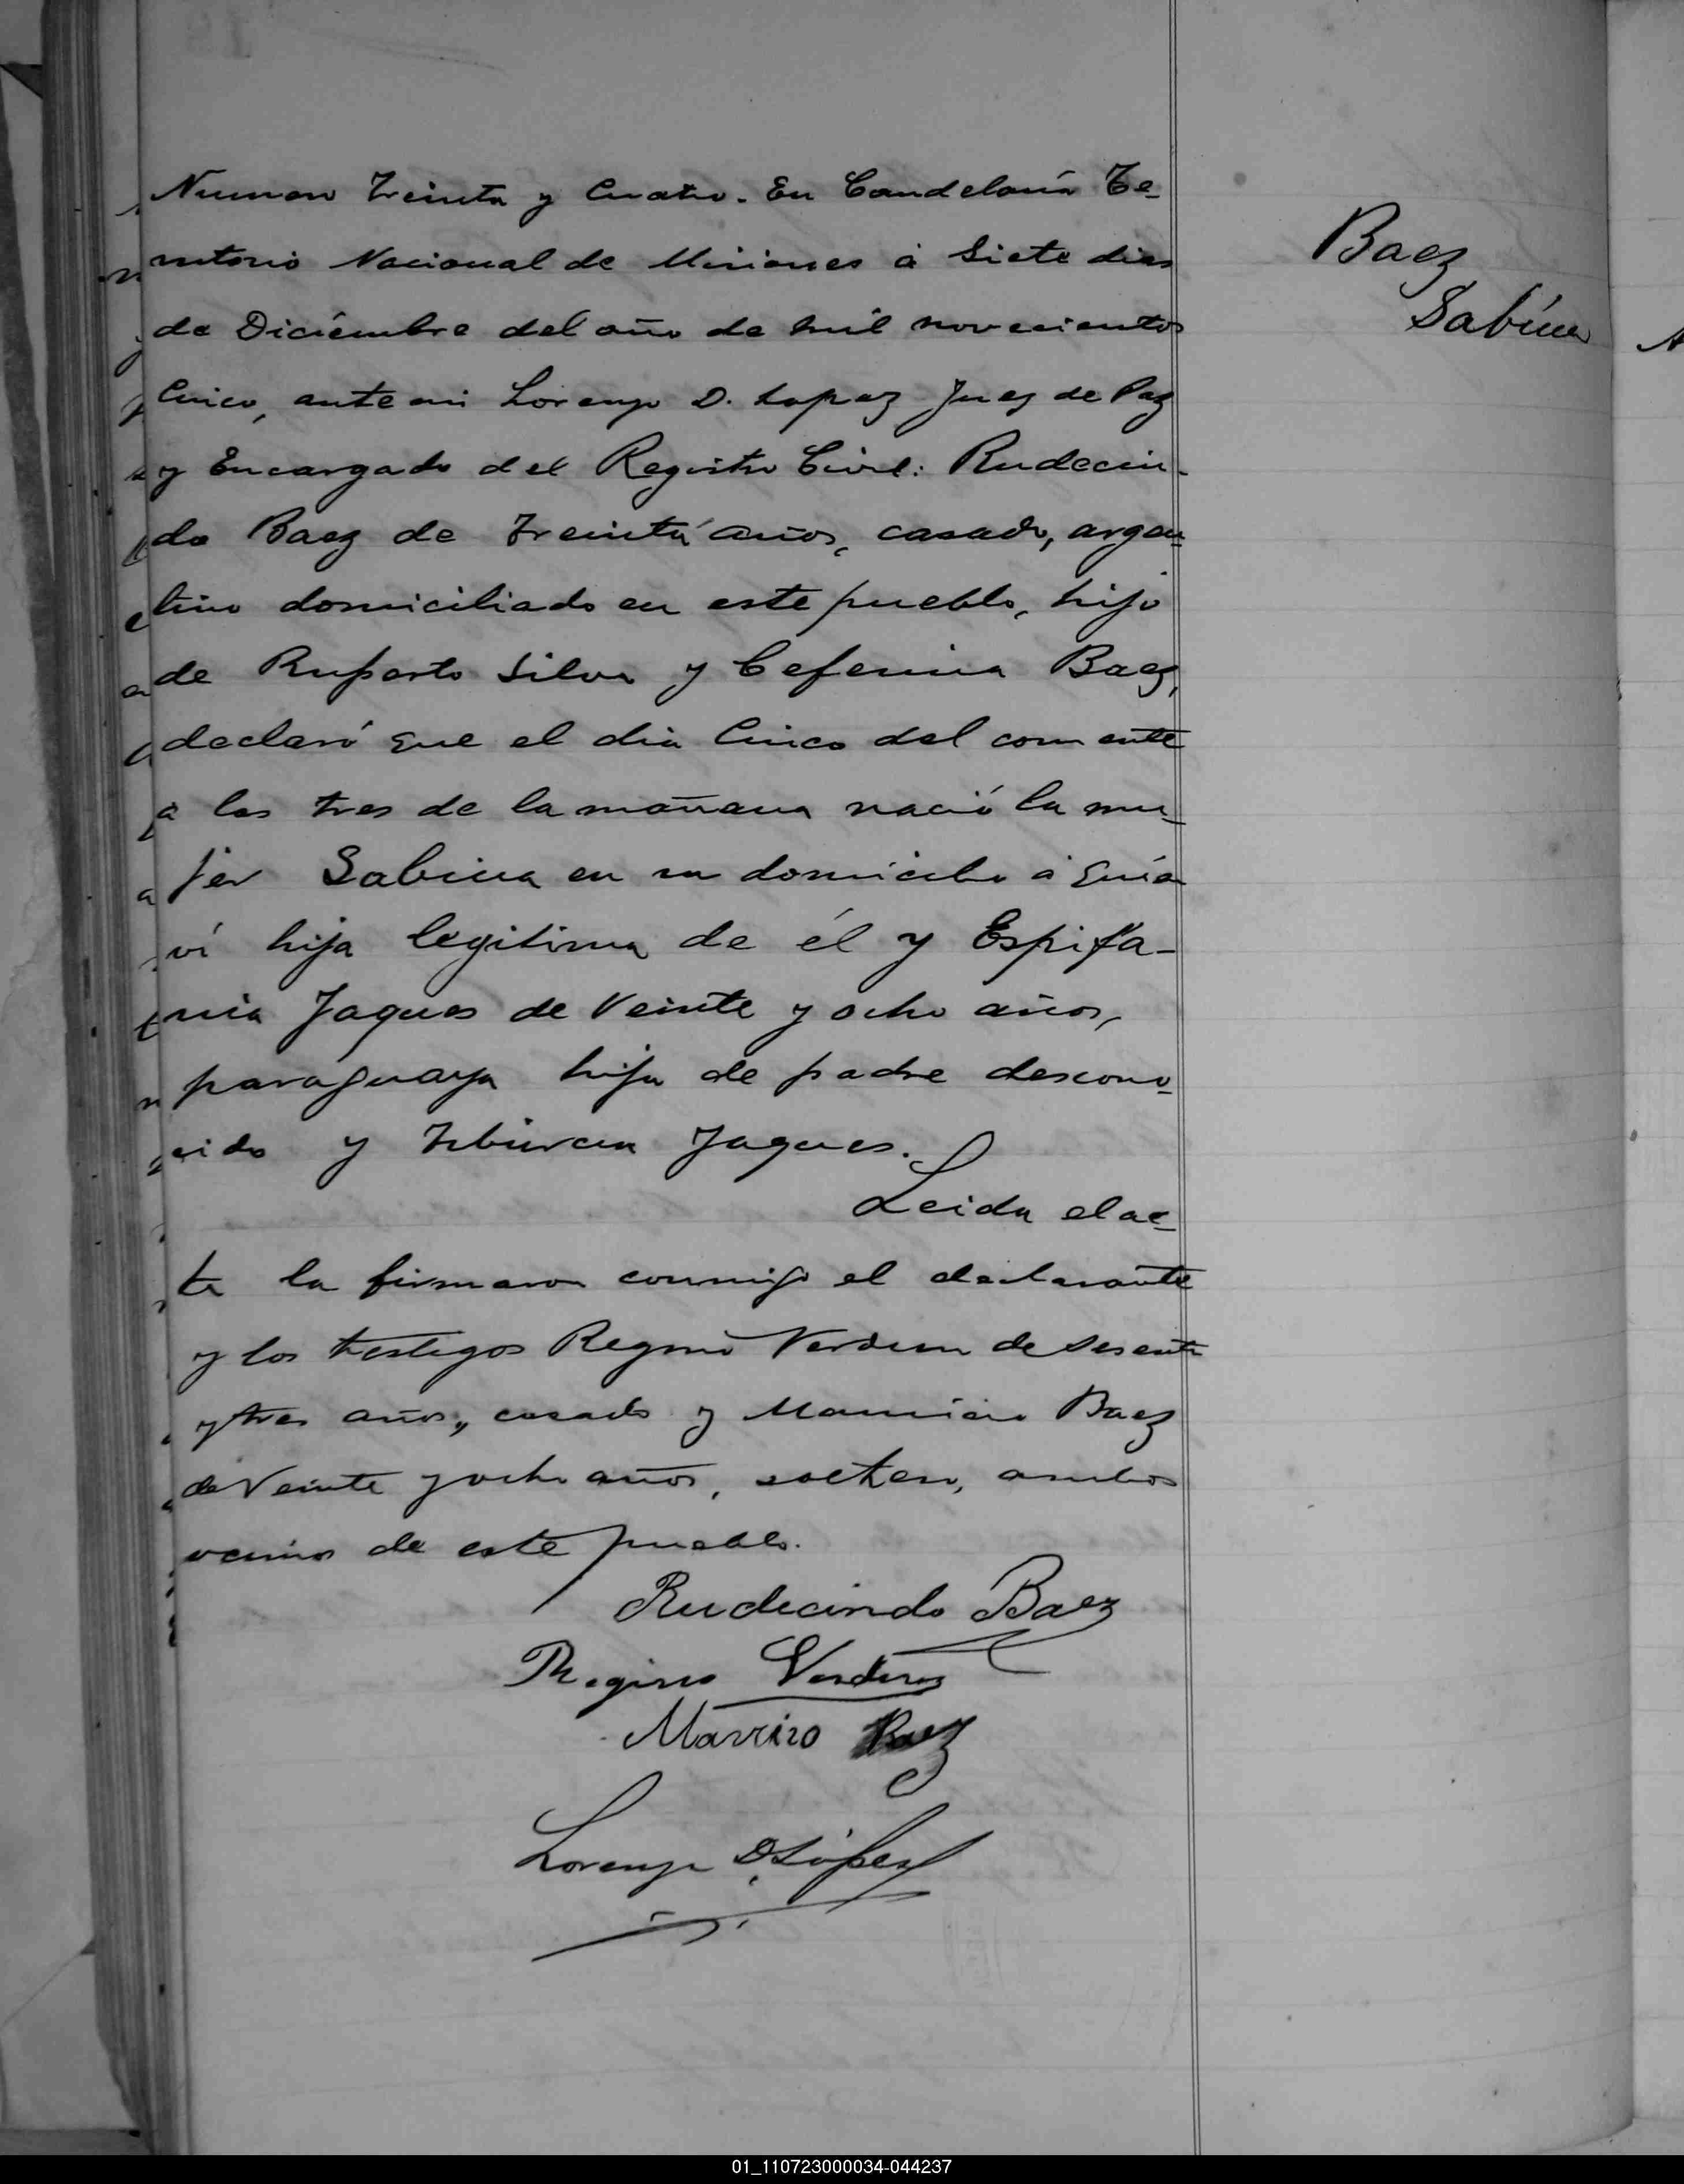 Numero Treinta y Cuatro. En Candelaria Te-
rritorio Nacional de Misiones á Siete dias
de Diciembre del año de mil novecientos
Cinco, ante mi Lorenzo D. Lopez Juez de Paz
y Encargado del Registro Civil: Rudecin-
do Baez de Treinta años, casado, argen-
tino domiciliado en este pueblo, hijo
de Ruperto Silva y Ceferina Baez,
declaró que el dia Cinco del corriente
á las tres de la mañana nació la mu-
jer Sabina en su domicilio á quien
ví hija legitima de él y Espifa-
nia Jaques de Veinte y ocho años,
paraguaya hija de padre descono-
cido y Tiburcia Jaques.
Leida el ac-
ta la firmaron conmigo el declarante
y los testigos Regino Verdun de sesenta
y tres años, casado y Mauricio Baez
de Veinte y ocho años, soltero, ambos
vecinos de este pueblo.
Rudecindo Baez
Regino Verdun
Maurizo Baez
Lorenzo D. López
Baez
Sabina
01_110723000034-044237